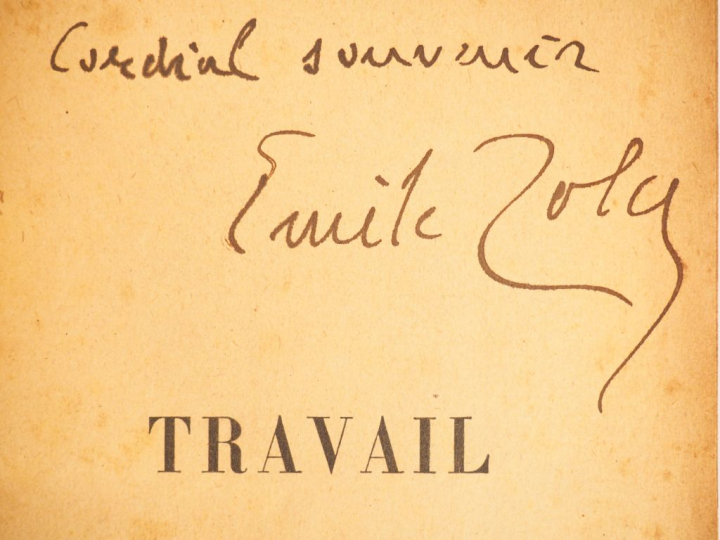 Cordial souvenir
Emile Zola
TRAVAIL